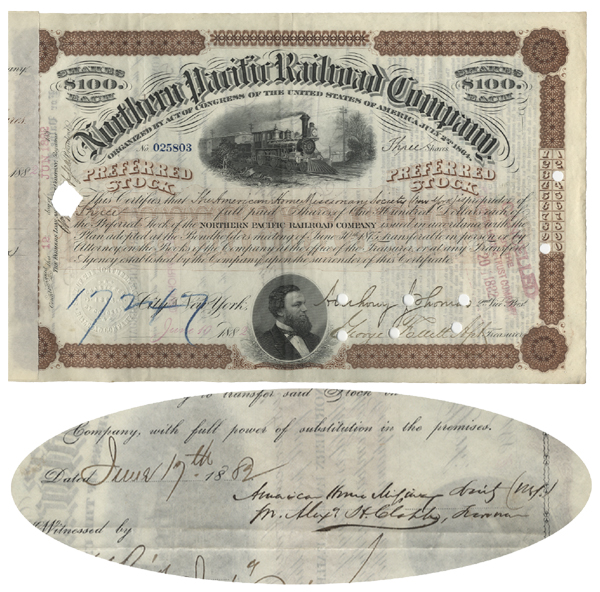 SHARES $100. EACH
SHARES $100. EACH
Northern Pacific Railroad Company
ORGANIZED BY ACT OF CONGRESS OF THE UNITED STATES OF AMERICA JULY 2ND 1864.
No. 025803
Three Shares
PREFERRED STOCK
PREFERRED STOCK
This Certifies that The American Home Missionary Society New York is proprietor of
Three full paid Shares of One Hundred Dollars each of
the Preferred Stock of the NORTHERN PACIFIC RAILROAD COMPANY issued in accordance with the
Plan adopted by the Bondholders meeting of June 30th 1875, transferable in person or by
Attorney on the Books of the Company in the office of the Treasurer, or at any Transfer
Agency established by the Company upon the surrender of this Certificate.
17247
City of New York,
Anthony J Thomas
June 19 188
George Treasurer
to transfer said Stock on
Company, with full power of substitution in the premises.
Dated June 17th 1882
American Home
H. Clapp,
Witnessed by